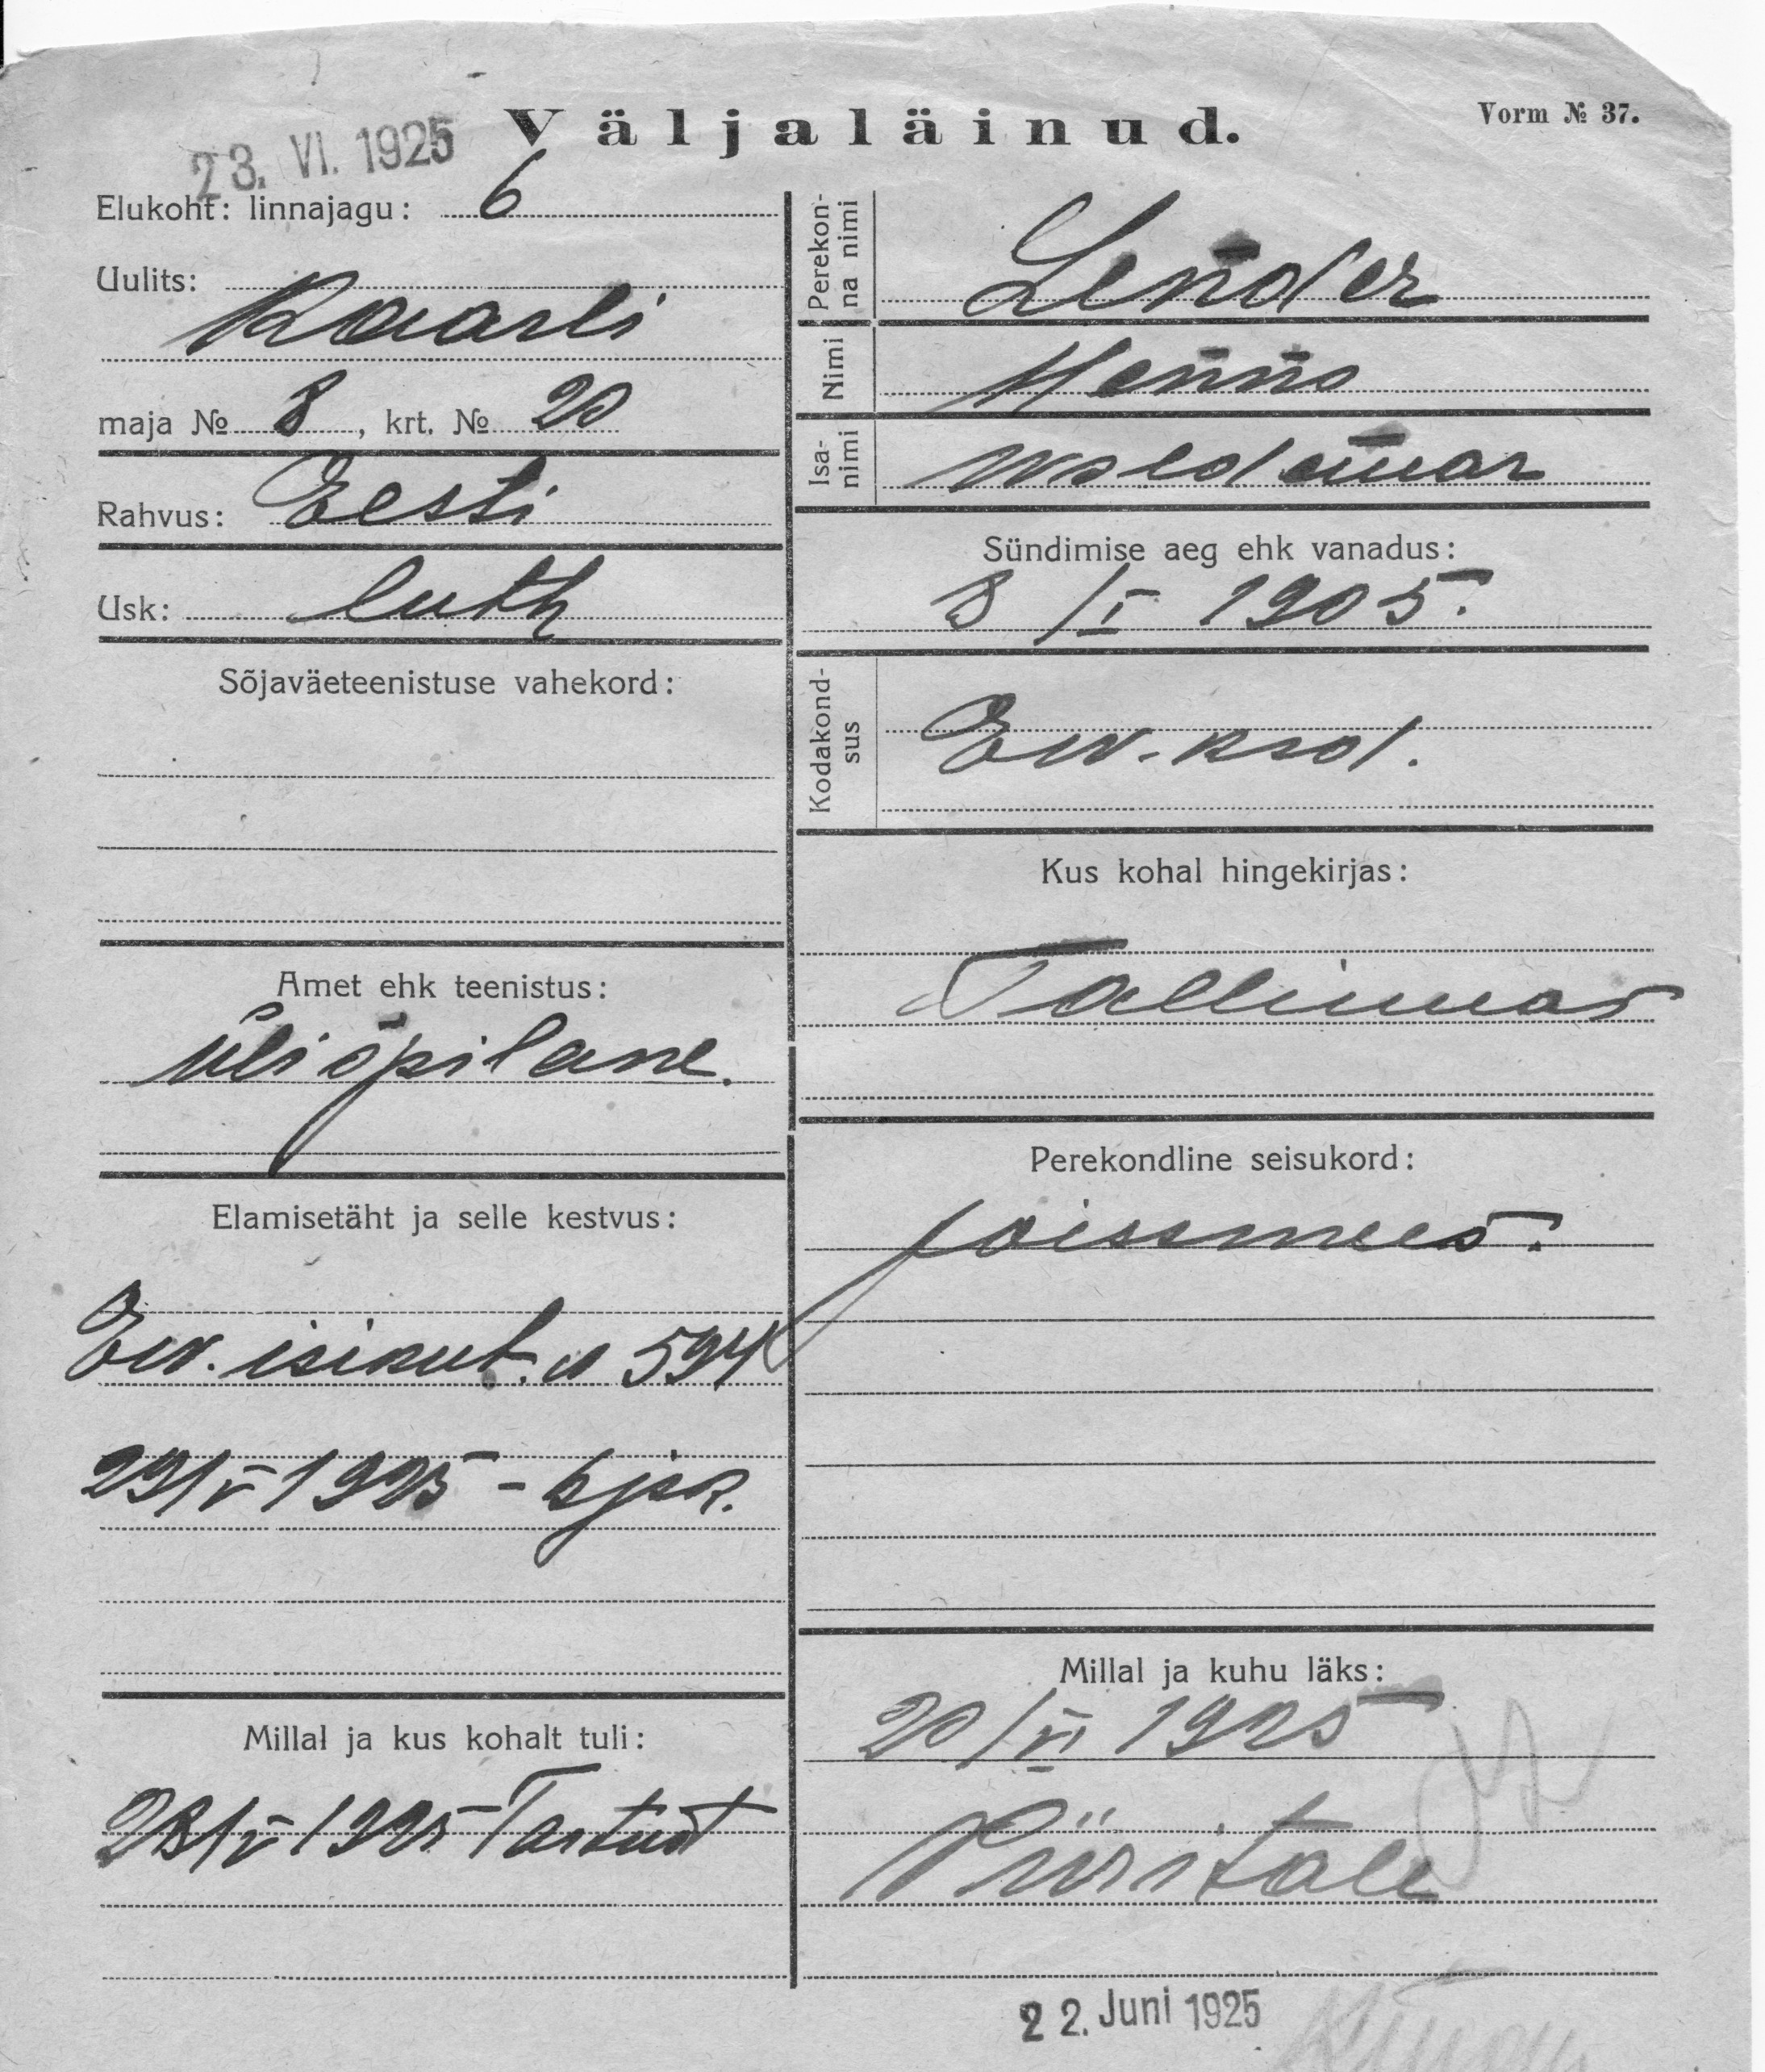 Väljaläinud.
Vorm № 37.
23. VI. 1925
Elukoht: linnajagu: 6
Uulits:
Kaarli
maja № 8, krt. № 20
Rahvus: Eesti
Usk: luth
Sõjaväeteenistuse vahekord:
Amet ehk teenistus:
üliõpilane.
Elamisetäht ja selle kestvus:
Ew. isikut. № 594
29/V 1925 - 6 jsk.
Millal ja kus kohalt tuli:
28/V 1925 Tartust
Perekonna nimi
Lender
Nimi
Henno
Isanimi
Woldemar
Sündimise aeg ehk vanadus:
8/I 1905.
Kodakondsus
Ew. kod.
Kus kohal hingekirjas:
Tallinnas
Perekondline seisukord:
poissmees.
Millal ja kuhu läks:
20/VI 1925
Piiritale
22. Juni 1925